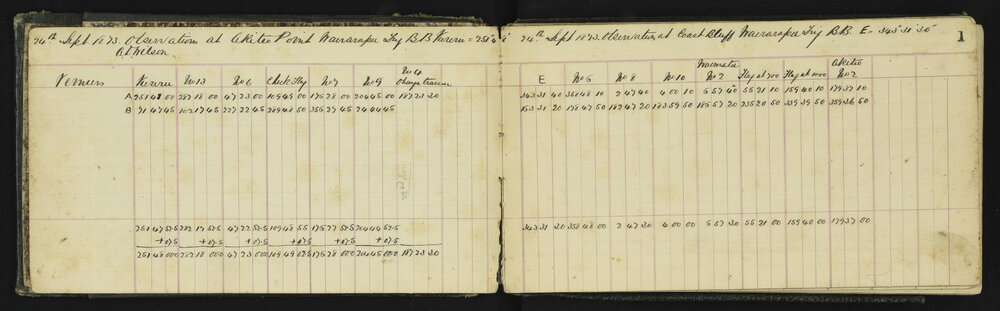 24th Sept 1873. Observations at Akiteo Point Wairarapa Trig B.B. Kururu = 251° 48'
A.D. Wilson
Verniers Kururu No 13 No 6 Check Flg No 7 No 9 No 4 Change traverse
A 251 48 00 282 18 00 47 23 00 109 49 00 175 28 00 204 45 00 187 23 30
B 71 47 45 102 17 45 227 22 45 289 48 50 355 27 45 24 44 45
251 47 52.5 282 17 52.5 47 22 52.5 109 48 55 175 27 52.5 204 44 52.5
+ 07.5 + 07.5 + 07.5 + 07.5 + 07.5
251 48 00.0 282 18 00 47 23 00.0 109 49 02.5 175 28 00.0 204 45 00.0 187 23 30
24th Sept 1873. Observations at Coast Bluff Wairarapa Trig B.B. E = 343° 31' 30" 1
E No 6 No 8 No 10 Waimata No 2 Flag at 700 Flag at 1000 Akiteo No 2
343 31 40 358 48 10 2 47 40 4 00 10 5 57 40 55 21 10 159 40 10 179 37 10
163 31 20 178 47 50 182 47 20 183 59 50 185 57 20 235 20 50 339 39 50 359 36 50
343 31 30 358 48 00 2 47 30 4 00 00 5 57 30 55 21 00 159 40 00 179 37 00